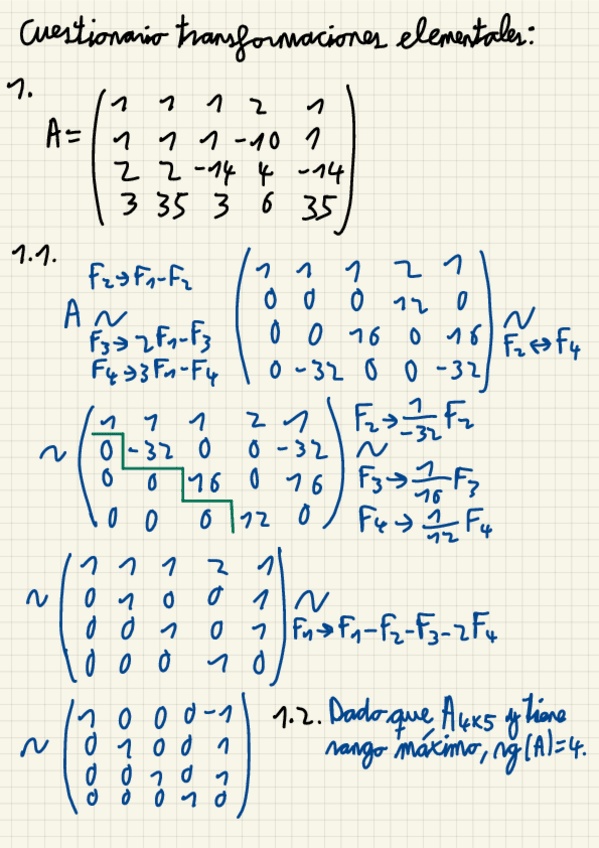 Cuestionario transformaciones elementales:
1.
A = ( 1 1 1 2 1
1 1 1 -10 1
2 2 -14 4 -14
3 35 3 6 35 )
1.1.
A ~ F₂→F₁-F₂
F₃→2F₁-F₃
F₄→3F₁-F₄
( 1 1 1 2 1
0 0 0 12 0
0 0 16 0 16
0 -32 0 0 -32 ) ~ F₂↔F₄
~ ( 1 1 1 2 1
0 -32 0 0 -32
0 0 16 0 16
0 0 0 12 0 )
~ F₂→1/-32 F₂
F₃→1/16 F₃
F₄→1/12 F₄
~ ( 1 1 1 2 1
0 1 0 0 1
0 0 1 0 1
0 0 0 1 0 ) ~ F₁→F₁-F₂-F₃-2F₄
~ ( 1 0 0 0 -1
0 1 0 0 1
0 0 1 0 1
0 0 0 1 0 )
1.2. Dado que A₄ₓ₅ y tiene
rango máximo, rg(A)=4.